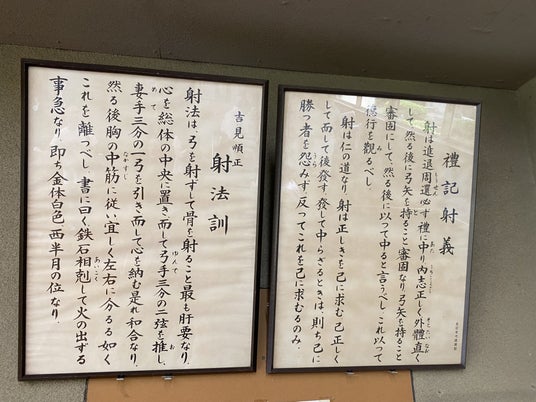 禮記射義
射は進退周還必ず禮に中り内志正しく外體直く
して然る後に弓矢を持ること審固なり弓矢を持ること
審固にして、然る後に以って中ると言うべし、これ以って
德行を觀るべし
射は仁の道なり。射は正しきを己に求む。己正しく
して而して後發す。發して中らざるときは、則ち己に
勝つ者を怨みず。反ってこれを己に求むるのみ。
射法訓
吉見順正
射法は、弓を射ずして骨を射ること最も肝要なり。
心を総体の中央に置き而して弓手三分の二弦を推し、
妻手三分の一弓を引き而して心を納む是れ和合なり。
然る後胸の中筋に従い宜しく左右に分るる如く
これを離つべし。書に曰く鉄石相剋して火の出ずる
事急なり。即ち金体白色、西半月の位なり。